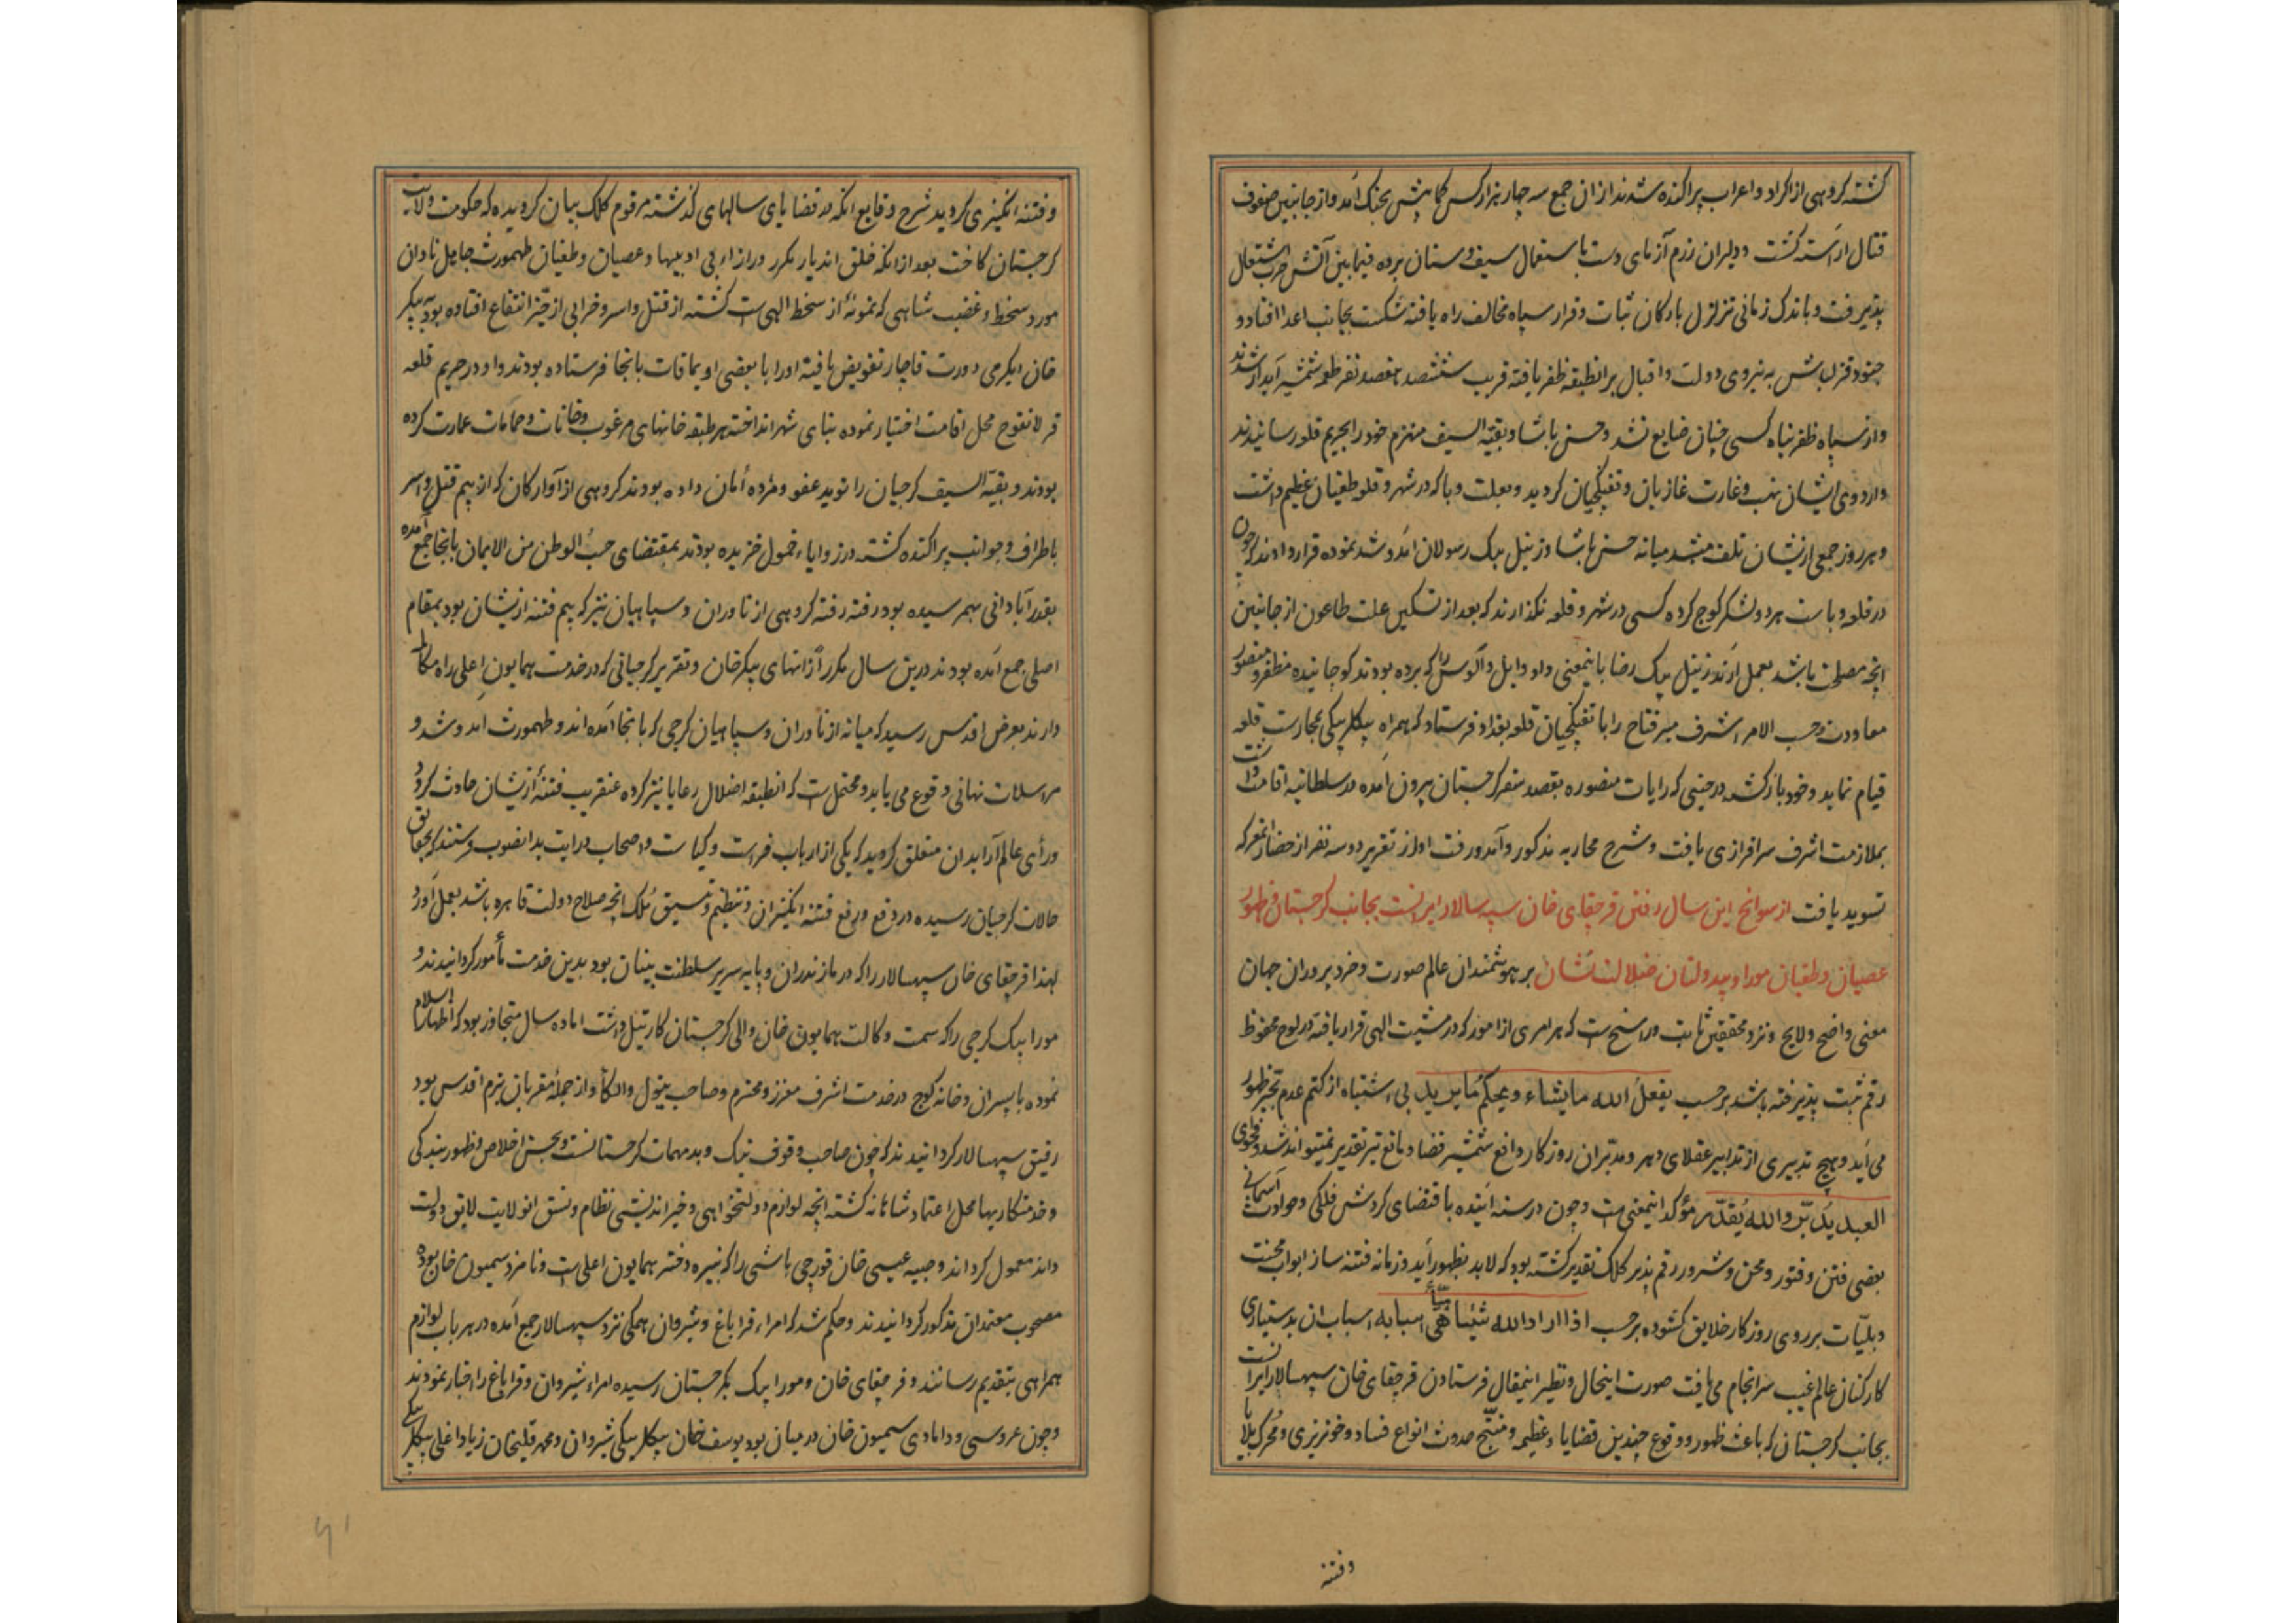 کشته کروهی از اکراد و اعراب پراکنده شدند از ان جمع سه چهار هزار کس کما بیش بجنک آمد و از جانبین صفوف
قتال اراسته کشت و دلیران رزم آزمای دست باستعمال سیف و سنان برده فیما بین آتش حرب اشتعال
پذیرفت و باندک زمانی تزلزل بارکان ثبات و قرار سپاه مخالف راه یافته شکست بجانب اعدا افتاد و
جنود قزلباش به نیروی دولت و اقبال بر انطبقه ظفر یافته قریب ششصد هفصد نفر طعمه شمشیر آبدار شدند
و از سپاه ظفر پناه کسی چنان ضایع نشد و حسن پاشا و بقیة السیف منهزم خود را بحریم قلعه رسانیدند
و اردوی ایشان نهب و غارت غازیان و تفنکچیان کردید و بعلت وبا که در شهر و قلعه طغیان عظیم داشت
و هر روز جمعی ازیشان تلف میشد میانه حسن پاشا و زینل بیک رسولان آمد و شد نموده قرار دادند که چون
در قلعه وباست هر دو لشکر کوچ کرده کسی در شهر و قلعه نکذارند که بعد از تسکین علت طاعون از جانبین
انچه مصلحت باشد بعمل آرند زینل بیک رضا باینمعنی داد و ایل و الوس را که برده بودند کوچانیده مظفر و منصور
معاودت و حسب الامر اشرف میر فتاح را با تفنکچیان قلعه بغداد فرستاد که همراه بیکلربیکی بحارست قلعه
قیام نماید و خود باز کشته در حینی که رایات منصوره بقصد سفر کرجستان بیرون آمده در سلطانیه اقامت داشت
بملازمت اشرف سرافرازی یافت و شرح محاربه مذکور و آمد و رفت او از تقریر دو سه نفر از حضار انمعرکه
تسوید یافت از سوانح این سال رفتن قرچقای خان سپه سالار ایرانست بجانب کرجستان و ظهور
عصیان و طغیان موراو بیدولتان ضلالت نشان بر هوشمندان عالم صورت و خرد پروران جهان
معنی واضح و لایح و نزد محققین ثابت و راسخ است که هر امری از امور که در مشیت الهی قرار یافته در لوح محفوظ
رقم ثبت پذیرفته باشد بر حسب یفعل الله ما یشاء و یحکم ما یرید بی اشتباه از کتم عدم بحیّز ظهور
می آید و هیچ تدبیری از تدابیر عقلای دهر و مدبّران روزکار دافع شمشیر قضا و مانع تیر تقدیر نمیتواند شد و فحوای
العبد یدبّر والله یُقدّر مؤکد اینمعنی است و چون در سنه آینده باقتضای کردش فلکی و حوادث آسمانی
بعضی فتن و فتور و محن و شرور رقم پذیر کلک تقدیر کشته بود که لابد بظهور آید و زمانه فتنه ساز ابواب محنت
و بلیّات بر روی روزکار خلایق کشوده بر حسب اذا اراد الله شیئا هیّأ اسبابه اسباب ان بدستیاری
کارکنان عالم غیب سرانجام می یافت صورت اینحال و نظیر اینمقال فرستادن قرچقای خان سپهسالار ایرانست
بجانب کرجستان که باعث ظهور و وقوع چندین قضایاء عظیمه و منتّج حدوث انواع فساد و خونریزی و محرک بلایا
وفتنه
و فتنه انکیزی کردید شرح وقایع آنکه در قضایای سالهای کذشته مرقوم کلک بیان کردیده که حکومت ولایت
کرجستان کاخت بعد از انکه خلق اندیار مکرر در ازاء بی ادبیها و عصیان و طغیان طهمورث جاهل نادان
مورد سخط و غضب شاهی که نمونهٔ از سخط الهی است کشته از قتل و اسر و خرابی از حیّز انتفاع افتاده بود به پیکر
خان ایکرمی دورت قاجار تفویض یافته او را با بعضی اویماقات بانجا فرستاده بودند و او در حریم قلعه
قرلانقوچ محل اقامت اختیار نموده بنای شهر انداخته هر طبقه خانهای مرغوب و خانات و حمامات عمارت کرده
بودند و بقیة السیف کرجیان را نوید عفو و مژده امان داده بودند کروهی از آوارکان که از بیم قتل و اسر
باطراف و جوانب پراکنده کشته در زوایاء خمول خزیده بودند بمقتضای حبّ الوطن من الایمان بانجا جمع آمده
بقدر آبادانی بهم رسیده بود رفته رفته کروهی از ناوران و سپاهیان نیز که بیم فتنه ازیشان بود بمقام
اصلی جمع آمده بودند درین سال مکرر از انهای پیکر خان و تقریر کرجیانی که در خدمت همایون اعلی راه مکالمه
دارند بعرض اقدس رسید که میانه از ناوران و سپاهیان کرجی که بانجا آمده اند و طهمورث آمد و شد و
مراسلات نهانی وقوع می یابد و محتمل است که انطبقه اضلال رعایا نیز کرده عنقریب فتنهٔ ازیشان حادث کردد
و رأی عالم آرا بدان متعلق کردید که یکی از ارباب فراست و کیاست و اصحاب درایت بدانصوب فرستند که بحقایق
حالات کرجیان رسیده در دفع و رفع فتنه انکیزان و تنظیم و تنسیق مُلک انچه صلاح دولت قاهره باشد بعمل آورد
لهذا قرچقای خان سپهسالار را که در مازندران و پایه سریر سلطنت بنیان بود بدین خدمت مأمور کردانیدند و
مورا بیک کرجی را که سمت وکالت همایون خان والی کرجستان کارتیل داشت اما ده سال متجاوز بود که اظهار اسلام
نموده با پسران و خانه کوچ در خدمت اشرف معزز و محترم و صاحب تیول و الکاء و از جملهٔ مقربان بزم اقدس بود
رفیق سپهسالار کردانیدند که چون صاحب وقوف نیک و بد مهمات کرجستانست و بحسن اخلاص و ظهور بندکی
و خدمتکاریها محل اعتماد شاهانه کشته انچه لوازم دولتخواهی و خیراندیشی نظام و نسق انولایت لایق دولت
داند معمول کرداند و صبیه عیسی خان قورچی باشی را که نبیره دختر همایون اعلی است و نامزد سمیون خان بود
مصحوب معتمدان مذکور کردانیدند و حکم شد که امراء قراباغ و شیروان همکی نزد سپهسالار جمع آمده در هر باب لوازم
همراهی بتقدیم رسانند و قرچقای خان و مورا بیک بکرجستان رسیده امراء شیروان و قراباغ را اخبار نمودند
و چون عروسی و دامادی سمیون خان در میان بود یوسف خان بیکلربیکی شیروان و محمد قلیخان زیاد اغلی بیکلربیکی